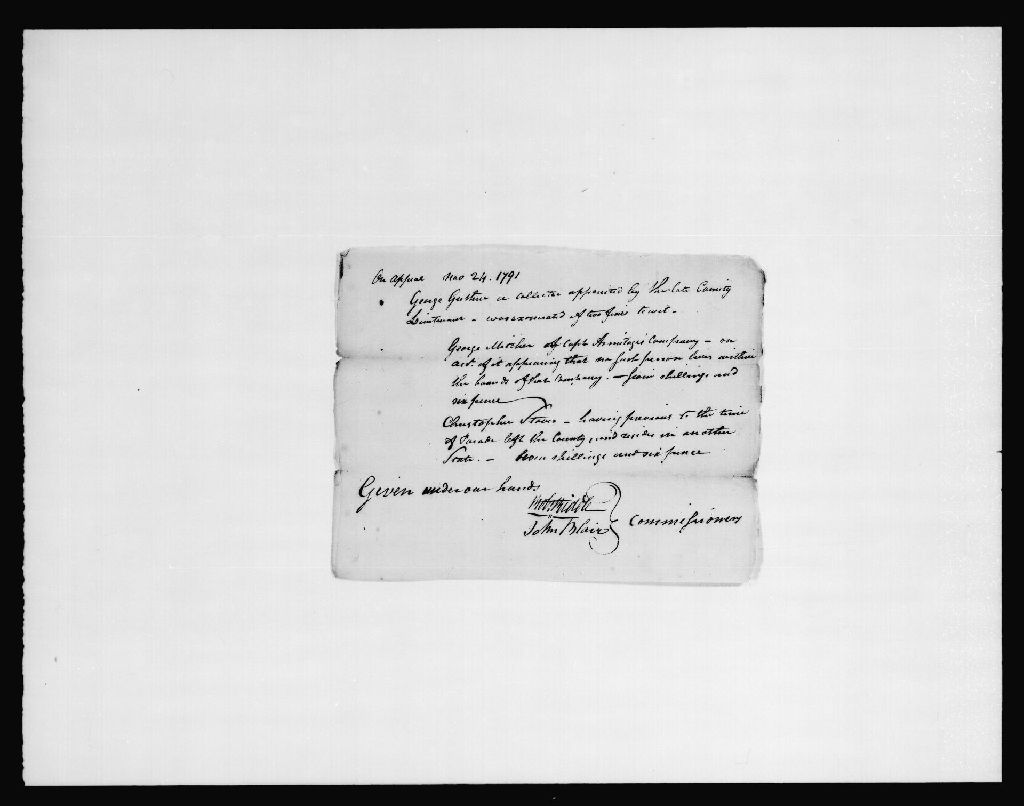 On appeal Nov 24. 1791
George Guthrie a Collector appointed by the late County
Lieutenant - was exonerated of two fines to wit -
George Mitchel of Capt. Armitages Company - on
acct. of it appearing that no such person lives within
the bounds of that Company. - four shillings and
six pence
Christopher - having previous to the time
of Parade left the County, and resides in another
State. - shillings and six pence
Given under our hands
John Blair Commissioners